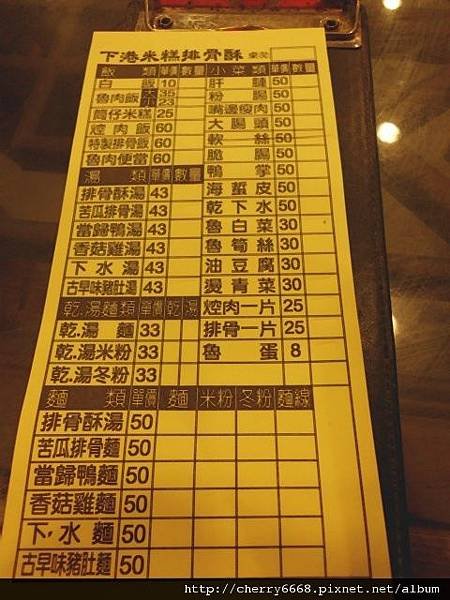 下港米糕排骨酥 桌號
飯類 單價 數量 小菜類 單價 數量
白飯 10 肝腱 50
魯肉飯 大 35 小 23 粉腸 50
嘴邊瘦肉 50
筒仔米糕 25 大腸頭 50
焢肉飯 60 軟絲 50
特製排骨飯 60 脆腸 50
魯肉便當 60 鴨掌 50
湯類 單價 數量 海蜇皮 50
排骨酥湯 43 乾下水 50
苦瓜排骨湯 43 魯白菜 30
當歸鴨湯 43 魯筍絲 30
香菇雞湯 43 油豆腐 30
下水湯 43 燙青菜 30
古早味豬肚湯 43
乾.湯麵類 單價 乾 湯 焢肉一片 25
乾.湯麵 33 排骨一片 25
乾.湯米粉 33 魯蛋 8
乾.湯冬粉 33
麵類 單價 麵 米粉 冬粉 麵線
排骨酥湯 50
苦瓜排骨麵 50
當歸鴨麵 50
香菇雞麵 50
下·水麵 50
古早味豬肚麵 50
http://cherry6668.pixnet.net/album